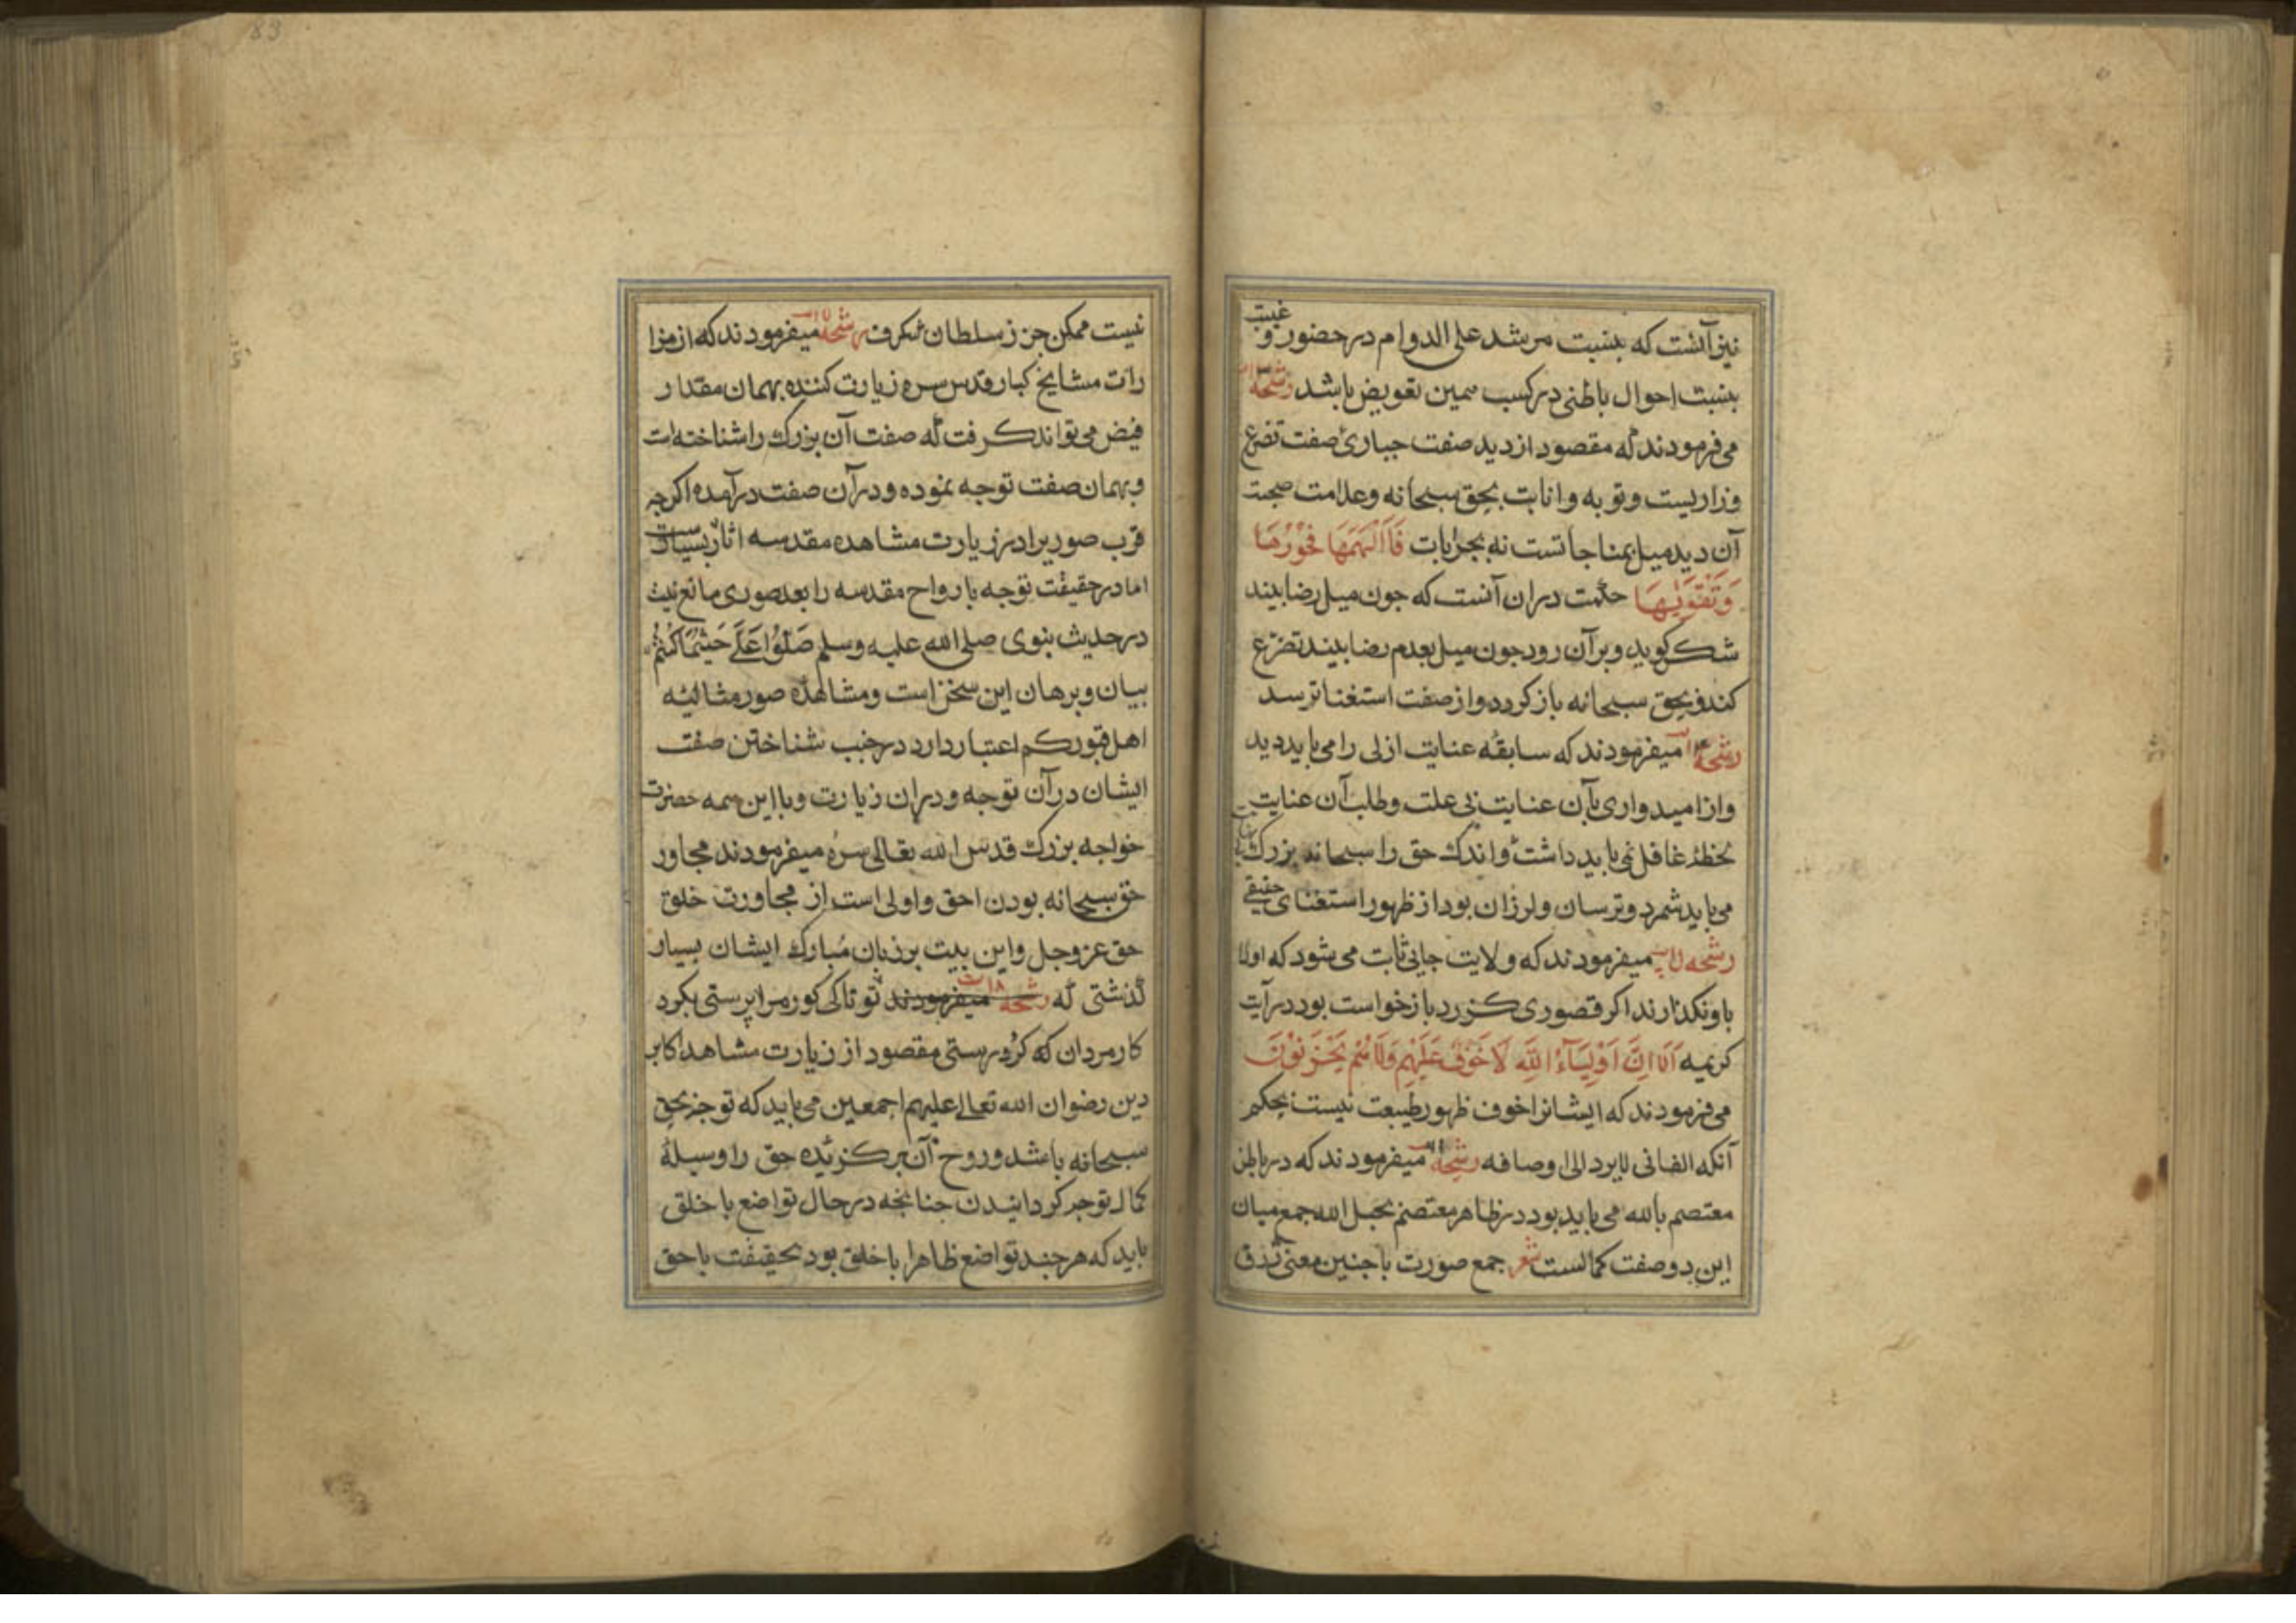 نیز آنست که بنسبت مرشد علی الدوام در حضور و غیبت
بنسبت احوال باطنی در کسب همین تفویض باشد رشحه
می فرمودند که مقصود از دید صفت جباری صفت تضرع
وزاریست و توبه و انابت بحق سبحانه و علامت صحت
آن دید میل بمناجاتست نه بخرابات فَأَلْهَمَهَا فُجُورَهَا
وَتَقْوٰیهَا حکمت دران آنست که جون میل رضا بیند
شکر کوید و بر آن رود جون میل بعدم رضا بیند تضرع
کند و بحق سبحانه باز کردد و از صفت استغنا ترسد
رشحه میفرمودند که سابقهٔ عنایت ازلی را می باید دید
و از امیدواری بآن عنایت بی علت و طلب آن عنایت
لحظهٔ غافل نمی باید داشت و اندک حق را سبحانه بزرک
می باید شمرد و ترسان و لرزان بود از ظهور استغنای حقیقی
رشحه میفرمودند که ولایت جایی ثابت می شود که اولا
باو نکذارند اکر قصوری کذرد بازخواست بود در آیت
کریمه اَلَا اِنَّ اَوْلِیَآءَ اللّٰهِ لَا خَوْفٌ عَلَیْهِمْ وَلَا هُمْ یَحْزَنُوْنَ
می فرمودند که ایشانرا خوف ظهور طبیعت نیست بحکم
آنکه الفانی لا یرد الی اوصافه رشحه میفرمودند که در باطن
معتصم بالله می باید بود در ظاهر معتصم بحبل الله جمع میان
این دو صفت کمالست شعر جمع صورت با جنین معنی ژرف
نیست ممکن جز ز سلطان شکرف رشحه میفرمودند که از مزا
رات مشایخ کبار قدس سره زیارت کننده بهمان مقدار
فیض می تواند کرفت که صفت آن بزرک را شناخته است
و بهمان صفت توجه نموده و در آن صفت درآمده اکرچه
قرب صوریرا در زیارت مشاهده مقدسه اثار بسیارست
اما در حقیقت توجه بارواح مقدسه را بعد صوری مانع نیست
در حدیث نبوی صلی الله علیه وسلم صَلُّوا عَلَیَّ حَیْثُمَا كُنْتُمْ
بیان و برهان این سخن است و مشاهده صور مثالیهٔ
اهل قبور کم اعتبار دارد در جنب شناختن صفت
ایشان در آن توجه و دران زیارت و با این همه حضرت
خواجه بزرک قدس الله تعالی سره میفرمودند مجاور
حق سبحانه بودن احق و اولی است از مجاورت خلق
حق عز وجل و این بیت بر زبان مبارک ایشان بسیار
کذشتی که رشحه میفرمودند تو تا کی کور مردان پرستی بکرد
کار مردان کرد رستی مقصود از زیارت مشاهد اکابر
دین رضوان الله تعالی علیهم اجمعین می باید که توجه بحق
سبحانه باشد و روح آن برکزیده حق را وسیلهٔ
کمال توجه کردانیدن جنانجه در حال تواضع با خلق
باید که هر جند تواضع ظاهرا با خلق بود بحقیقت با حق